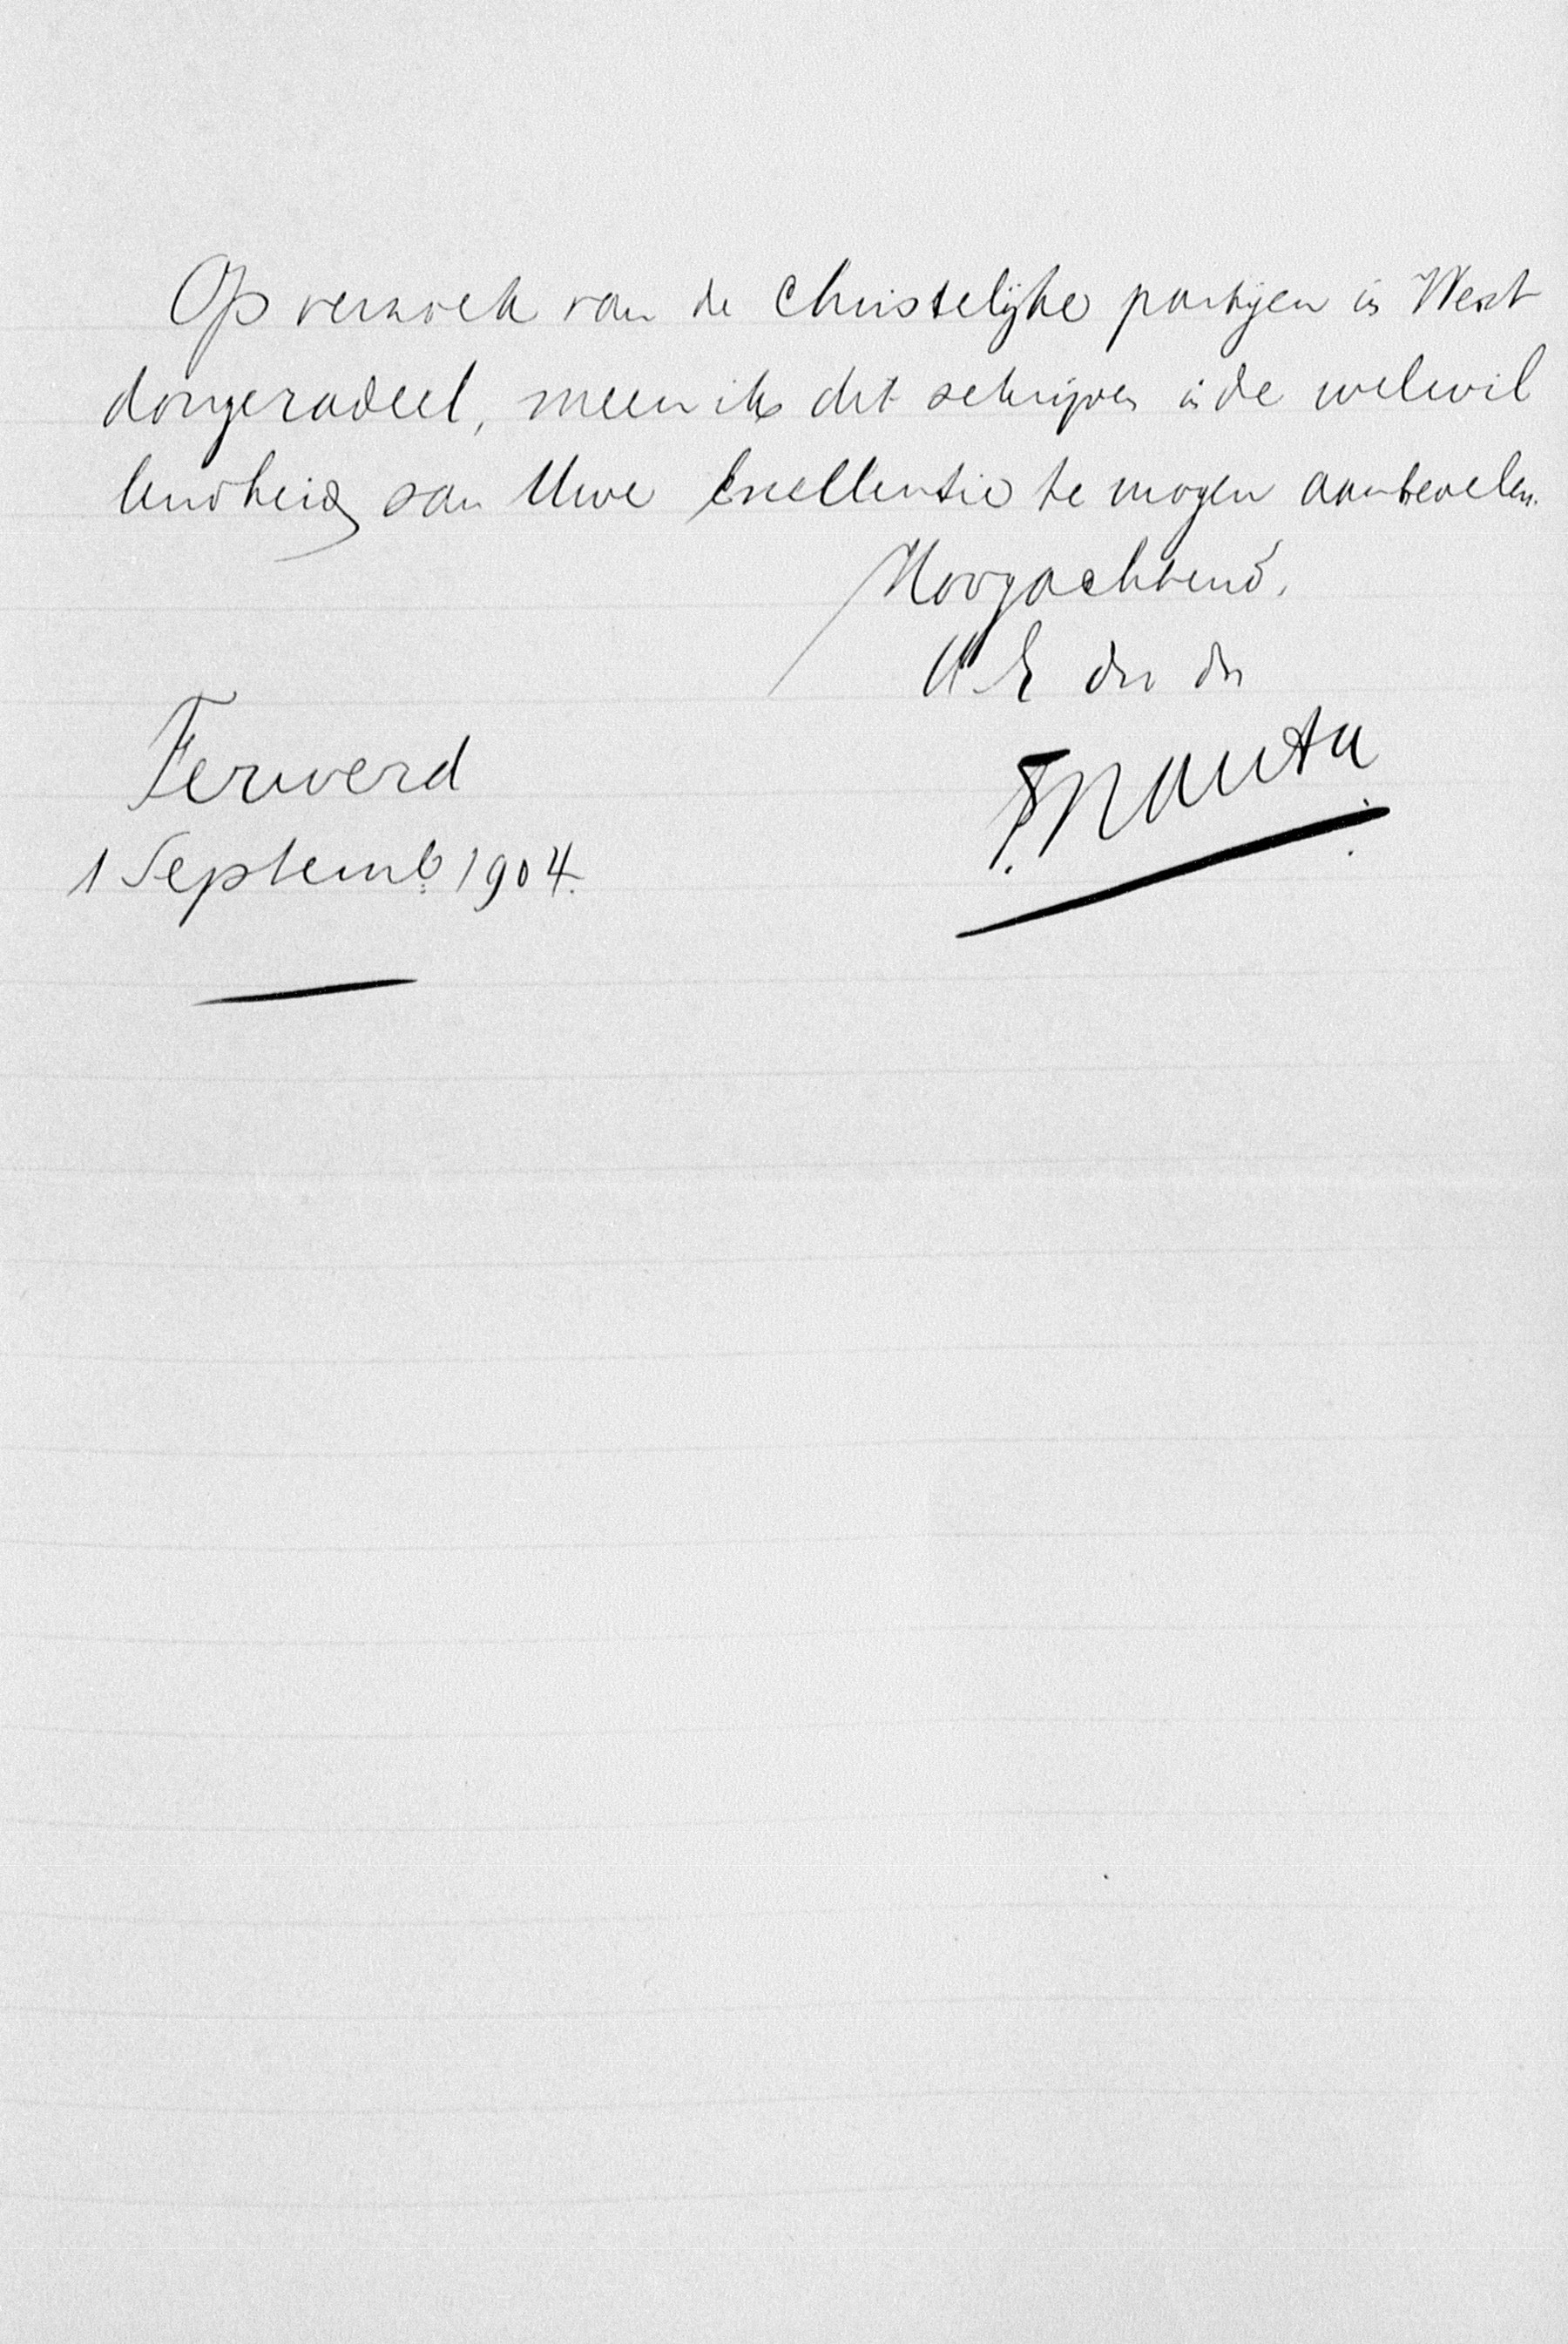 Op verzoek van de Christelijke partijen in West
dongeradeel, meen ik dit schrijven in de welwil
lendheid van Uwe Excellentie te mogen aanbevelen.
Hoogachtend,
U E dw dr
Nauta
Ferwerd
1 Septemb. 1904.